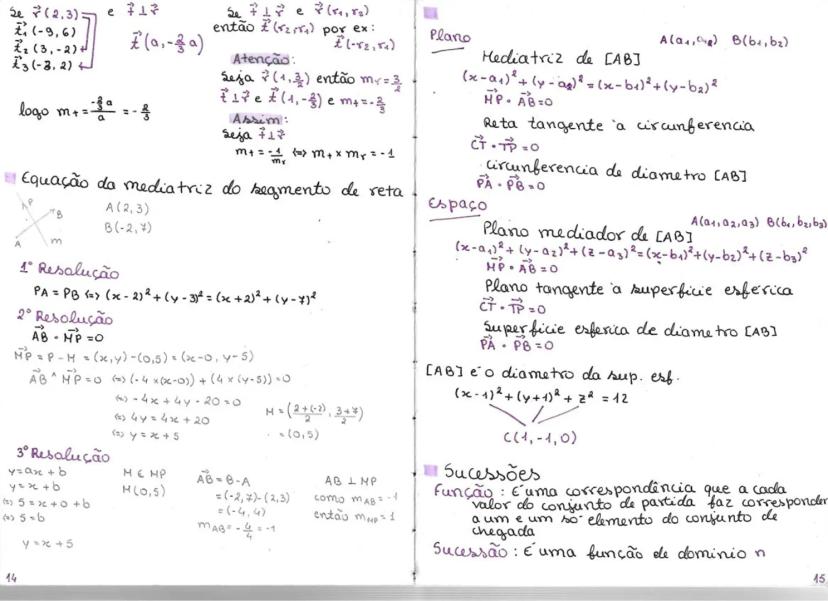 Se r⃗(2,3) e t⃗ ⊥ r⃗
t⃗₁(-9,6)
t⃗₂(3,-2)
t⃗₃(-3,2)
t⃗(a,-2/3 a)
logo mt = (-2/3 a)/a = -2/3
Se t⃗ ⊥ r⃗ e r⃗(r₁,r₂)
então t⃗(r₂,r₁) por ex:
t⃗(-r₂,r₁)
Atenção:
Seja r⃗(1,3/2) então mr = 3/2
t⃗ ⊥ r⃗ e t⃗(1,-2/3) e mt = -2/3
Assim:
Seja t⃗ ⊥ r⃗
mt = -1/mr ⇔ mt × mr = -1
Equação da mediatriz do segmento de reta
P
B
A
m
A(2,3)
B(-2,7)
1º Resolução
PA = PB ⇔ (x-2)² + (y-3)² = (x+2)² + (y-7)²
2º Resolução
AB⃗ · MP⃗ = 0
MP⃗ = P - M = (x,y) - (0,5) = (x-0, y-5)
AB⃗ ^ MP⃗ = 0 ⇔ (-4 × (x-0)) + (4 × (y-5)) = 0
⇔ -4x + 4y - 20 = 0
⇔ 4y = 4x + 20
⇔ y = x + 5
M = ((2+(-2))/2, (3+7)/2)
= (0,5)
3º Resolução
y = ax + b
y = x + b
⇔ 5 = x + 0 + b
⇔ 5 = b
y = x + 5
M ∈ MP
M(0,5)
AB⃗ = B - A
= (-2,7) - (2,3)
= (-4,4)
mAB = -4/4 = -1
AB ⊥ MP
como mAB = -1
então mMP = 1
14
Plano
A(a₁,a₂) B(b₁,b₂)
Mediatriz de [AB]
(x-a₁)² + (y-a₂)² = (x-b₁)² + (y-b₂)²
MP⃗ · AB⃗ = 0
Reta tangente à circunferencia
CT⃗ · TP⃗ = 0
Circunferencia de diametro [AB]
PA⃗ · PB⃗ = 0
Espaço
A(a₁,a₂,a₃) B(b₁,b₂,b₃)
Plano mediador de [AB]
(x-a₁)² + (y-a₂)² + (z-a₃)² = (x-b₁)² + (y-b₂)² + (z-b₃)²
MP⃗ · AB⃗ = 0
Plano tangente à superficie esférica
CT⃗ · TP⃗ = 0
Superficie esferica de diametro [AB]
PA⃗ · PB⃗ = 0
[AB] é o diametro da sup. esf.
(x-1)² + (y+1)² + z² = 12
C(1,-1,0)
Sucessões
Função: É uma correspondência que a cada
valor do conjunto de partida faz corresponder
a um e um só elemento do conjunto de
chegada
Sucessão: É uma função de dominio n
15